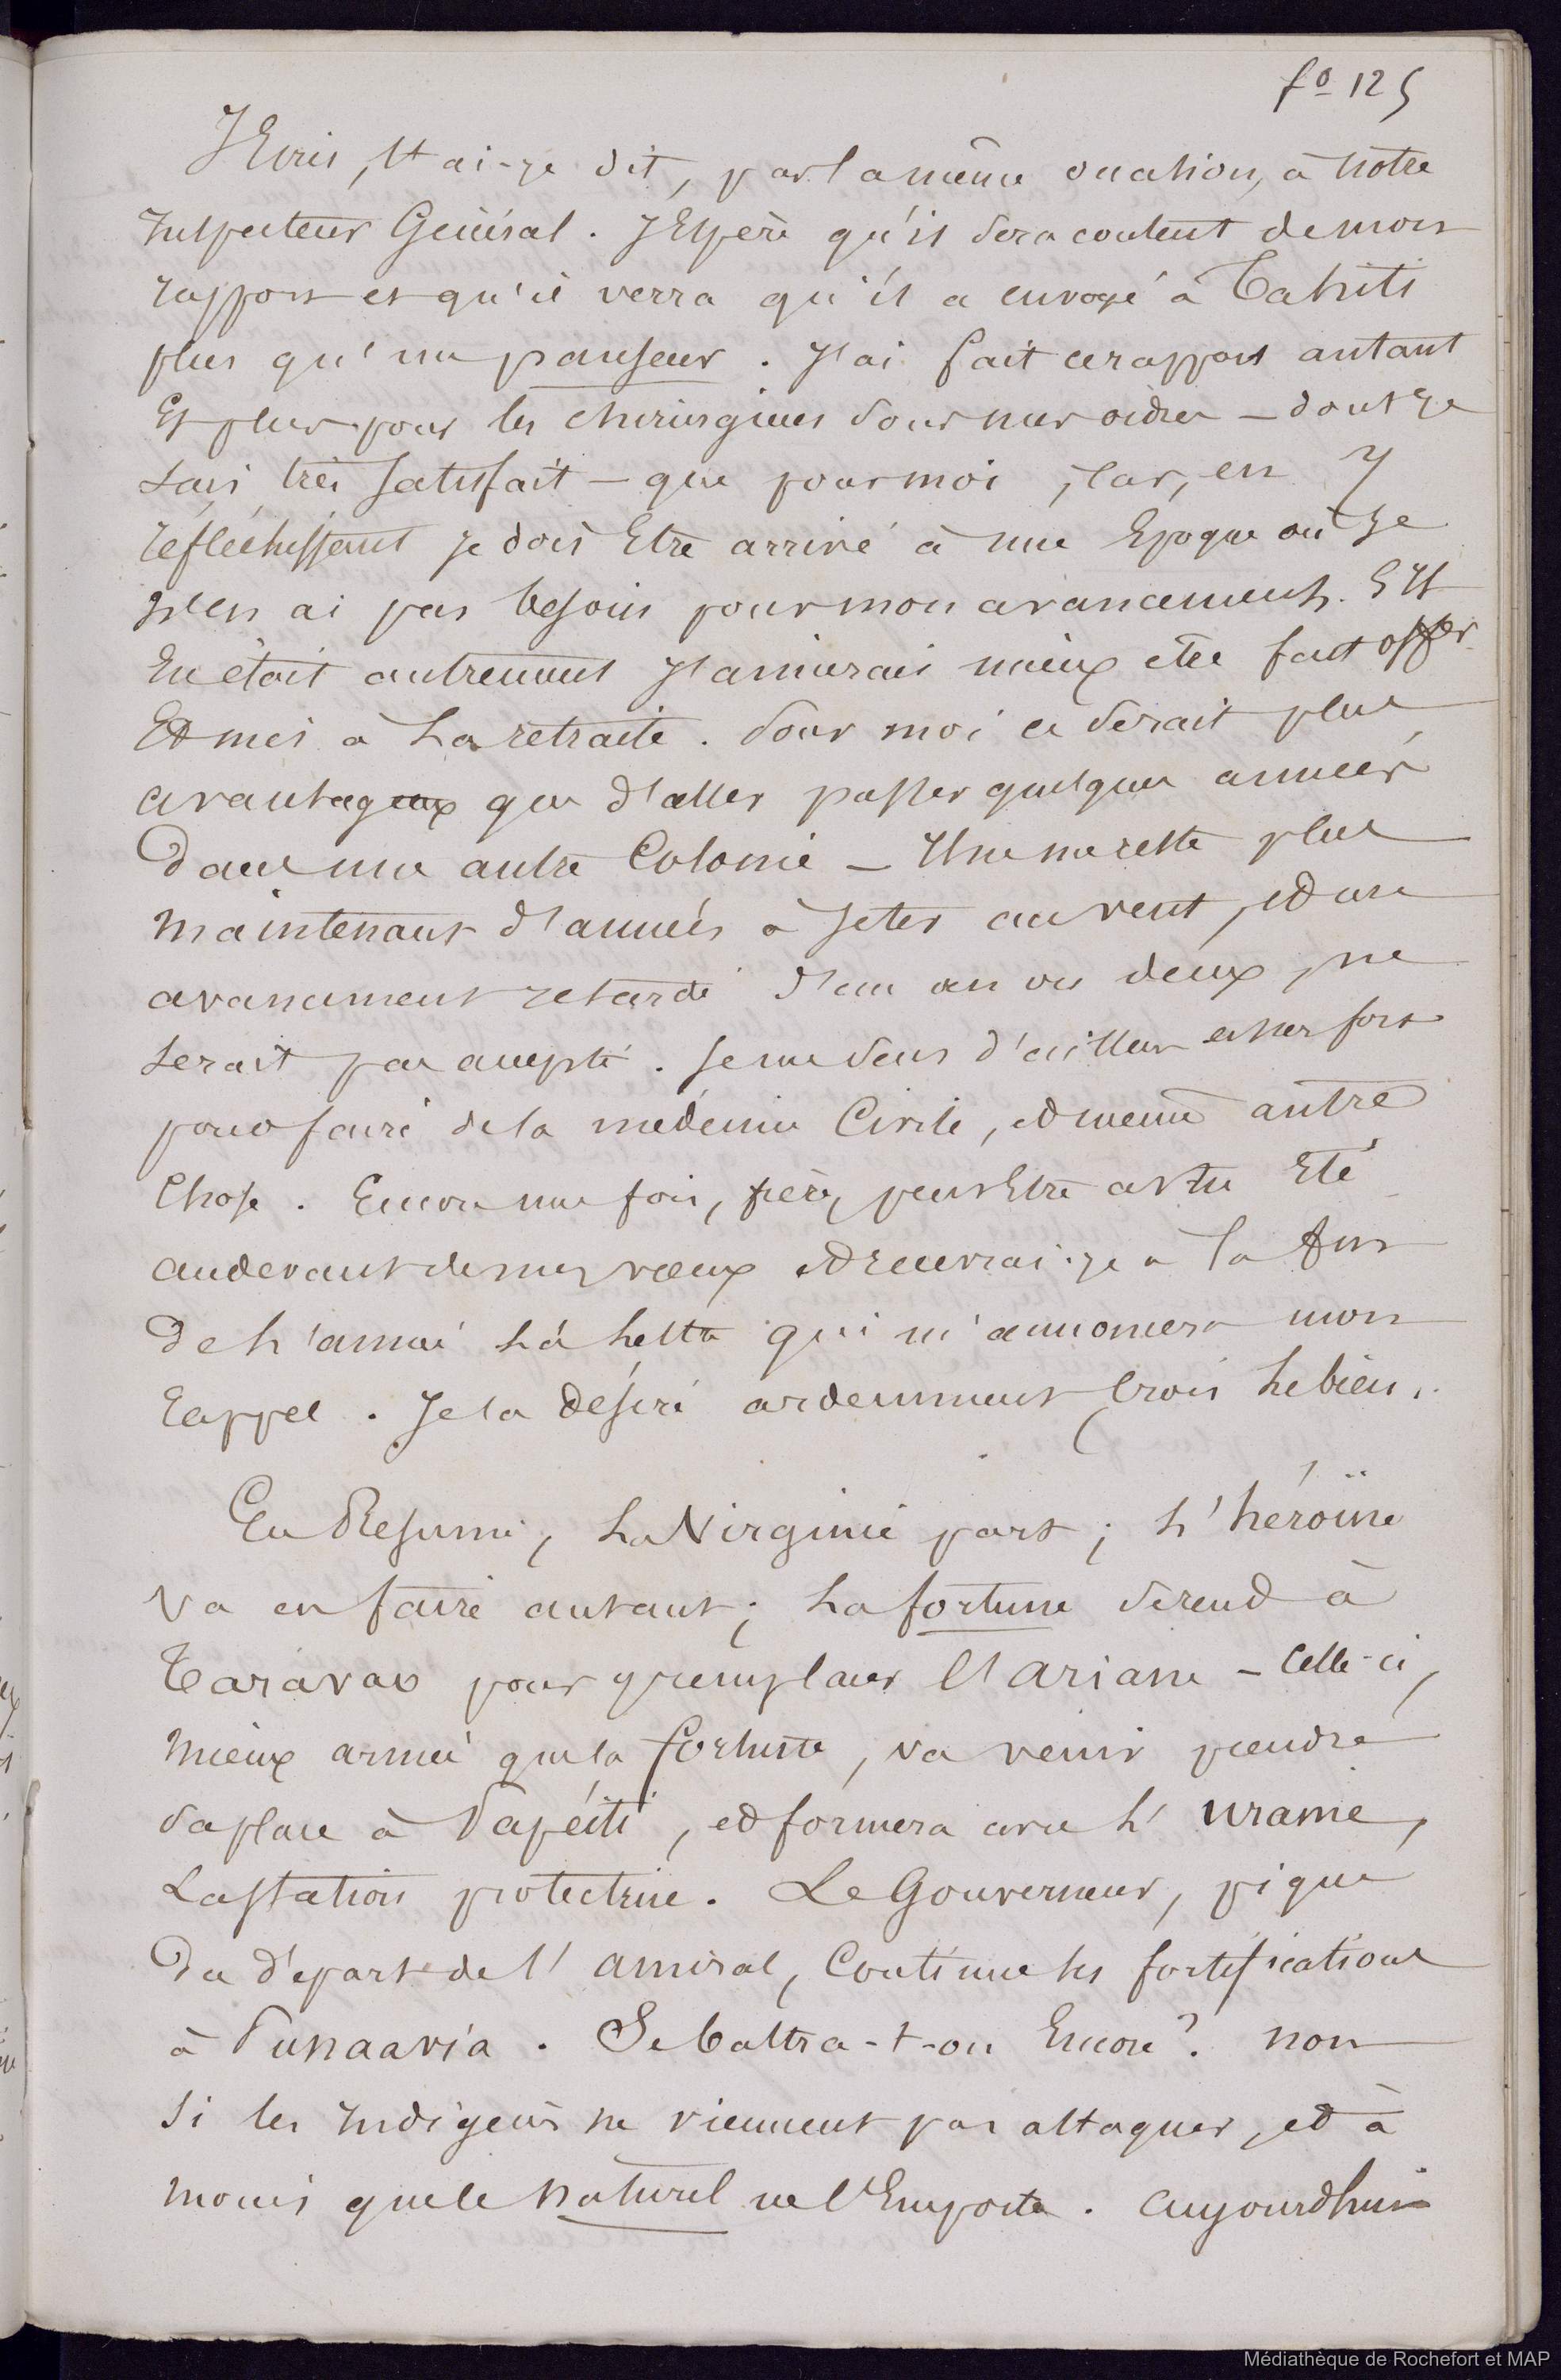 fo 125
J'Écris, t'ai-je dit, par la même occasion, à notre
Inspecteur Général. J'Espère qu'il sera content de mon
rapport et qu'il verra qu'il a envoyé à Tahiti
plus qu'un panseur. J'ai fait ce rapport autant
Et plus pour les chirurgiens sous mes ordres – dont je
suis très satisfait – que pour moi, Car, en y
réfléchissant je dois Etre arrivé à une Epoque où je
n'en ai pas besoin pour mon avancement. S'Il
En était autrement J'aimerais mieux être fait offer
Et mis à La retraite. Pour moi ce serait plus
avantageux que d'aller passer quelques années
Dans une autre Colonie – Il ne me reste plus
maintenant d'années à jeter au vent, et un
avancement retardé d'un an ou deux, ne
serait pas accepté. Je me sens d'ailleurs assez fort
pour faire de la médecine Civile, et même autre
Chose. Encore une fois, frère, peut Etre as tu Eté
audevant de mes vœux et recevrai-je à la fin
De L'année La Lettre qui m'annoncera mon
Rappel. Je la désire ardemment Crois Le bien.
En Résumé, La Virginie part; L'héroïne
va en faire autant; La fortune se rend à
Taravao pour y remplacer l'Ariane – Celle-ci,
mieux armée que la fortune, va venir prendre
sa place à Papéiti, et formera avec L'uranie,
La station protectrice. Le Gouverneur, piqué
Du départ de l'amiral, Continue les fortifications
à Punaavia. Se battra-t-on Encore? non
Si les Indigènes ne viennent pas attaquer, et à
moins que le naturel ne l'Emporte. Aujourdhui
Médiathèque de Rochefort et MAP